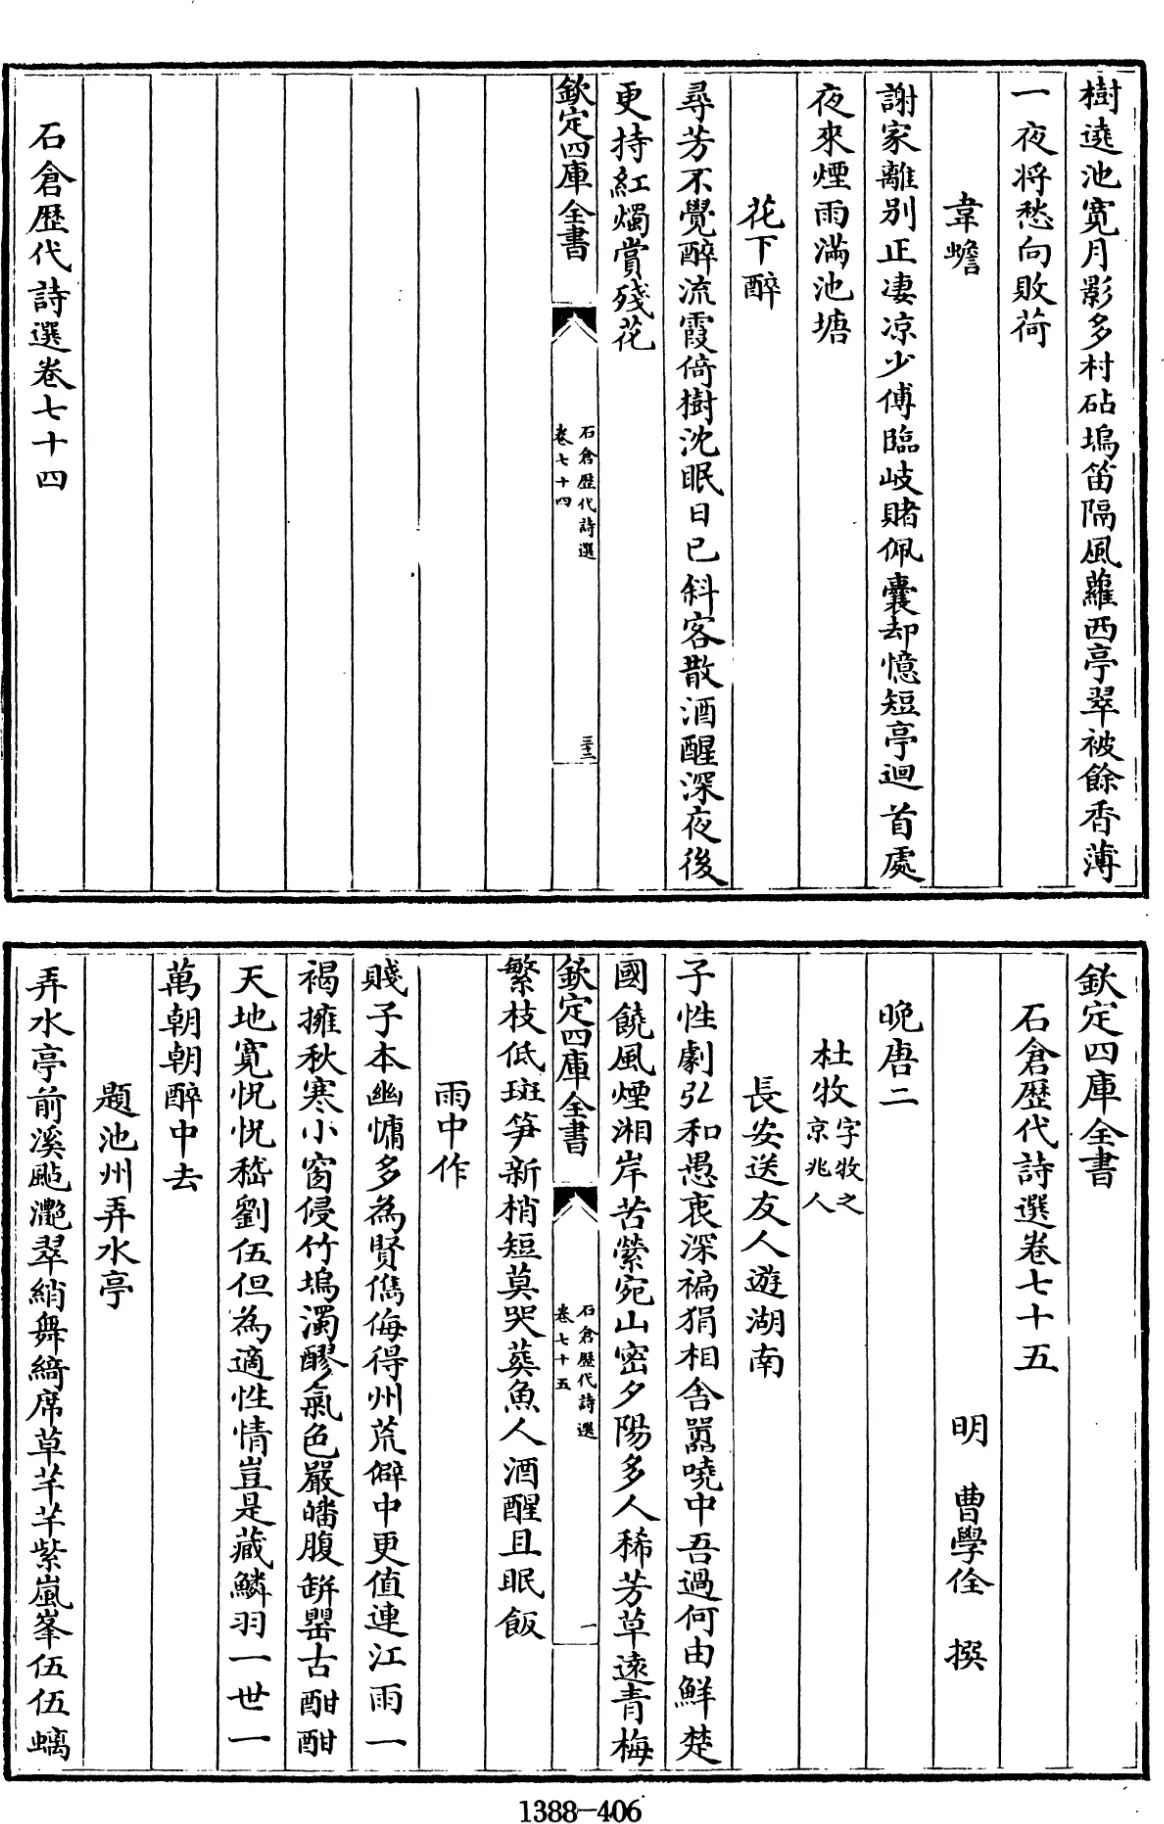 樹遶池寛月影多村砧塢笛隔風蘿西亭翠被餘香薄
一夜將愁向敗荷
韋蟾
謝家離別正凄凉少傅臨岐賭佩囊却憶短亭迴首處
夜來煙雨滿池塘
花下醉
尋芳不覺醉流霞倚樹沈眠日已斜客散酒醒深夜後
更持紅燭賞殘花
欽定四庫全書
石倉歷代詩選
卷七十四
三十二
石倉歷代詩選卷七十四
欽定四庫全書
石倉歷代詩選卷七十五
明 曹學佺 撰
晚唐二
杜牧字牧之京兆人
長安送友人遊湖南
子性劇弘和愚衷深褊狷相舍嚚嘵中吾過何由鮮楚
國饒風煙湘岸苦縈宛山密夕陽多人稀芳草遠青梅
欽定四庫全書
石倉歷代詩選
卷七十五
一
繁枝低斑笋新梢短莫哭葬魚人酒醒且眠飯
雨中作
賤子本幽慵多為賢儁侮得州荒僻中更值連江雨一
褐擁秋寒小窗侵竹塢濁醪氣色嚴皤腹缾罌古酣酣
天地寛怳怳嵇劉伍但為適性情豈是藏鱗羽一世一
萬朝朝醉中去
題池州弄水亭
弄水亭前溪颭灔翠綃舞綺席草芊芊紫嵐峯伍伍螭
1388-406